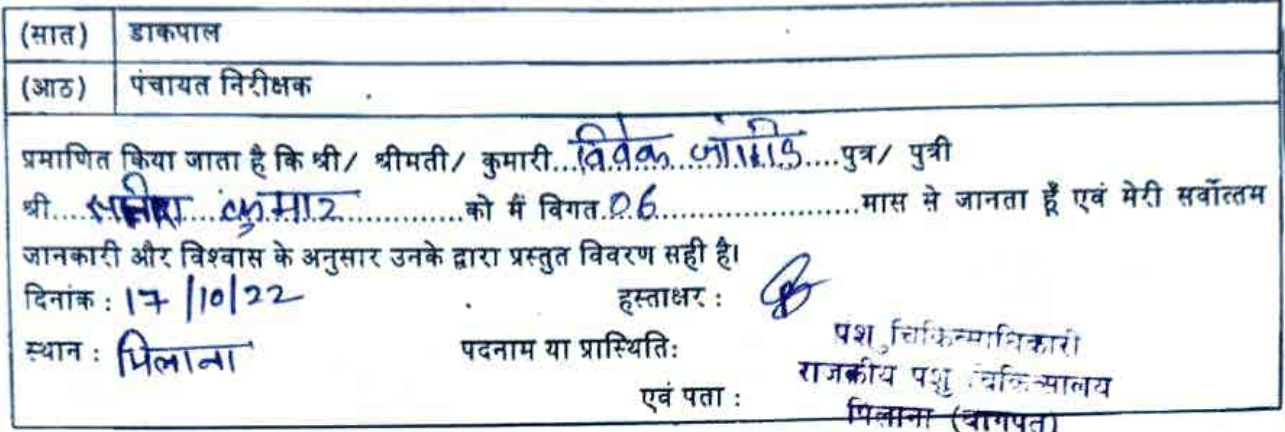 (सात) डाकपाल
(आठ) पंचायत निरीक्षक
प्रमाणित किया जाता है कि श्री/ श्रीमती/ कुमारी...विवेक जांगिड....पुत्र/ पुत्री
श्री.... कुमार..............को मैं विगत.06....................मास से जानता हूँ एवं मेरी सर्वोत्तम
जानकारी और विश्वास के अनुसार उनके द्वारा प्रस्तुत विवरण सही है।
दिनांक : 17/10/22 हस्ताक्षर :
स्थान : पिलाना पदनाम या प्रास्थिति: पशु चिकित्साधिकारी
राजकीय पशु चिकित्सालय
एवं पता : पिलाना (बागपत)